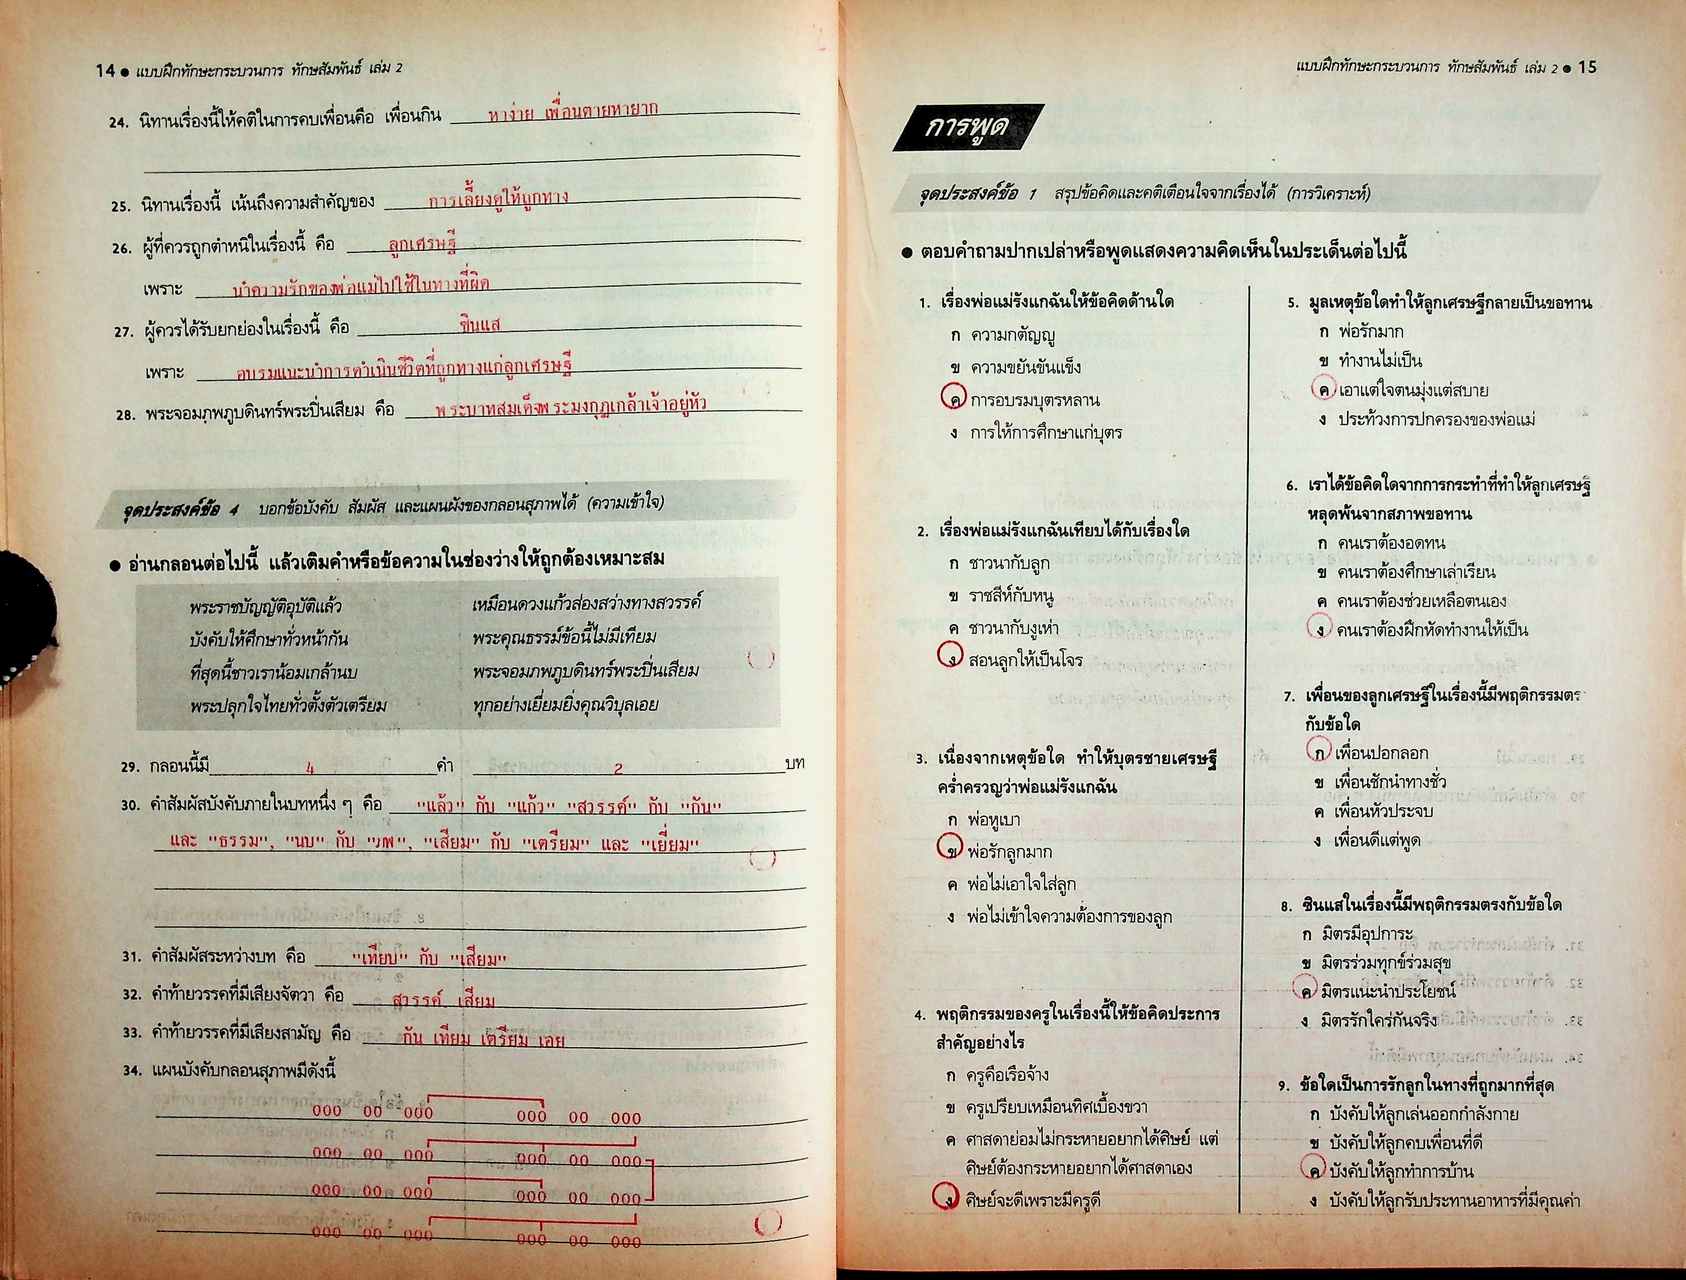 14 ● แบบฝึกทักษะกระบวนการ ทักษสัมพันธ์ เล่ม 2
24. นิทานเรื่องนี้ให้คติในการคบเพื่อนคือ เพื่อนกิน หาง่าย เพื่อนตายหายาก
25. นิทานเรื่องนี้ เน้นถึงความสำคัญของ การเลี้ยงดูให้ถูกทาง
26. ผู้ที่ควรถูกตำหนิในเรื่องนี้ คือ ลูกเศรษฐี
เพราะ นำความรักของพ่อแม่ไปใช้ในทางที่ผิด
27. ผู้ควรได้รับยกย่องในเรื่องนี้ คือ ซินแส
เพราะ อบรมแนะนำการดำเนินชีวิตที่ถูกทางแก่ลูกเศรษฐี
28. พระจอมภพภูบดินทร์พระปิ่นเสียม คือ พระบาทสมเด็จพระมงกุฎเกล้าเจ้าอยู่หัว
จุดประสงค์ข้อ 4 บอกข้อบังคับ สัมผัส และแผนผังของกลอนสุภาพได้ (ความเข้าใจ)
● อ่านกลอนต่อไปนี้ แล้วเติมคำหรือข้อความในช่องว่างให้ถูกต้องเหมาะสม
พระราชบัญญัติอุบัติแล้ว เหมือนดวงแก้วส่องสว่างทางสวรรค์
บังคับให้ศึกษาทั่วหน้ากัน พระคุณธรรม์ข้อนี้ไม่มีเทียม
ที่สุดนี้ชาวเราน้อมเกล้านบ พระจอมภพภูบดินทร์พระปิ่นเสียม
พระปลุกใจไทยทั่วตั้งตัวเตรียม ทุกอย่างเยี่ยมยิ่งคุณวิบุลเอย
29. กลอนนี้มี 4 คำ 2 บท
30. คำสัมผัสบังคับภายในบทหนึ่ง ๆ คือ "แล้ว" กับ "แก้ว" "สวรรค์" กับ "กัน"
และ "ธรรม", "นบ" กับ "ภพ", "เสียม" กับ "เตรียม" และ "เยี่ยม"
31. คำสัมผัสระหว่างบท คือ "เทียบ" กับ "เสียม"
32. คำท้ายวรรคที่มีเสียงจัตวา คือ สวรรค์ เสียม
33. คำท้ายวรรคที่มีเสียงสามัญ คือ กัน เทียม เตรียม เอย
34. แผนบังคับกลอนสุภาพมีดังนี้
000 00 000 000 00 000
000 00 000 000 00 000
000 00 000 000 00 000
000 00 000 000 00 000
แบบฝึกทักษะกระบวนการ ทักษสัมพันธ์ เล่ม 2 ● 15
การพูด
จุดประสงค์ข้อ 1 สรุปข้อคิดและคติเตือนใจจากเรื่องได้ (การวิเคราะห์)
● ตอบคำถามปากเปล่าหรือพูดแสดงความคิดเห็นในประเด็นต่อไปนี้
1. เรื่องพ่อแม่รังแกฉันให้ข้อคิดด้านใด
ก ความกตัญญู
ข ความขยันขันแข็ง
ค การอบรมบุตรหลาน
ง การให้การศึกษาแก่บุตร
2. เรื่องพ่อแม่รังแกฉันเทียบได้กับเรื่องใด
ก ชาวนากับลูก
ข ราชสีห์กับหนู
ค ชาวนากับงูเห่า
ง สอนลูกให้เป็นโจร
3. เนื่องจากเหตุข้อใด ทำให้บุตรชายเศรษฐี
คร่ำครวญว่าพ่อแม่รังแกฉัน
ก พ่อหูเบา
ข พ่อรักลูกมาก
ค พ่อไม่เอาใจใส่ลูก
ง พ่อไม่เข้าใจความต้องการของลูก
4. พฤติกรรมของครูในเรื่องนี้ให้ข้อคิดประการ
สำคัญอย่างไร
ก ครูคือเรือจ้าง
ข ครูเปรียบเหมือนทิศเบื้องขวา
ค ศาสดาย่อมไม่กระหายอยากได้ศิษย์ แต่
ศิษย์ต้องกระหายอยากได้ศาสดาเอง
ง ศิษย์จะดีเพราะมีครูดี
5. มูลเหตุข้อใดทำให้ลูกเศรษฐีกลายเป็นขอทาน
ก พ่อรักมาก
ข ทำงานไม่เป็น
ค เอาแต่ใจตนมุ่งแต่สบาย
ง ประท้วงการปกครองของพ่อแม่
6. เราได้ข้อคิดใดจากการกระทำที่ทำให้ลูกเศรษฐี
หลุดพ้นจากสภาพขอทาน
ก คนเราต้องอดทน
ข คนเราต้องศึกษาเล่าเรียน
ค คนเราต้องช่วยเหลือตนเอง
ง คนเราต้องฝึกหัดทำงานให้เป็น
7. เพื่อนของลูกเศรษฐีในเรื่องนี้มีพฤติกรรมตร
กับข้อใด
ก เพื่อนปอกลอก
ข เพื่อนชักนำทางชั่ว
ค เพื่อนหัวประจบ
ง เพื่อนดีแต่พูด
8. ซินแสในเรื่องนี้มีพฤติกรรมตรงกับข้อใด
ก มิตรมีอุปการะ
ข มิตรร่วมทุกข์ร่วมสุข
ค มิตรแนะนำประโยชน์
ง มิตรรักใคร่กันจริง
9. ข้อใดเป็นการรักลูกในทางที่ถูกมากที่สุด
ก บังคับให้ลูกเล่นออกกำลังกาย
ข บังคับให้ลูกคบเพื่อนที่ดี
ค บังคับให้ลูกทำการบ้าน
ง บังคับให้ลูกรับประทานอาหารที่มีคุณค่า